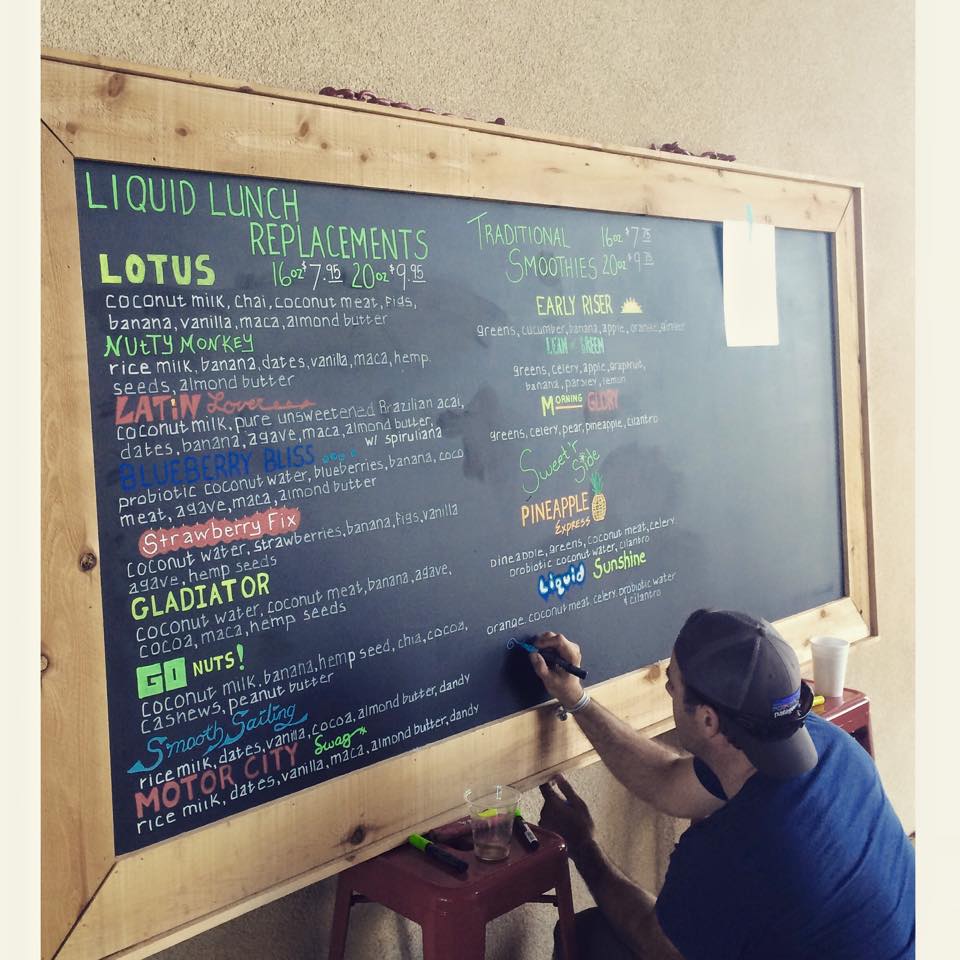 LIQUID LUNCH
REPLACEMENTS
16oz $7.95 20oz $9.95
LOTUS
coconut milk, chai, coconut meat, figs,
banana, vanilla, maca, almond butter
NUttY MONKEY
rice milk, banana, dates, vanilla, maca, hemp
seeds, almond butter
LATiN Lover
coconut milk, pure unsweetened Brazilian acai,
dates, banana, agave, maca, almond butter,
BLUEBERRY BLISS w/ spiruliana
probiotic coconut water, blueberries, banana, coco
meat, agave, maca, almond butter
Strawberry Fix
coconut water, strawberries, banana, figs, vanilla
agave, hemp seeds
GLADIATOR
coconut water, coconut meat, banana, agave,
cocoa, maca, hemp seeds
GO NUTS!
coconut milk, banana, hemp seed, chia, cocoa,
cashews, peanut butter
Smooth Sailing
rice milk, dates, vanilla, cocoa, almond butter, dandy
MOTOR CITY Swag
rice milk, dates, vanilla, maca, almond butter, dandy
TRADITIONAL 16oz $7.75
SMOOTHIES 20oz $9.75
EARLY RISER
greens, cucumber, banana, apple, orange, ginger
LEAN GREEN
greens, celery, apple, grapefruit,
banana, parsley, lemon
MORNING GLORY
greens, celery, pear, pineapple, cilantro
Sweet'r Side
PINEAPPLE
EXPRESS
pineapple, greens, coconut meat, celery,
probiotic coconut water, cilantro
Liquid Sunshine
orange, coconut meat, celery, probiotic water
& cilantro